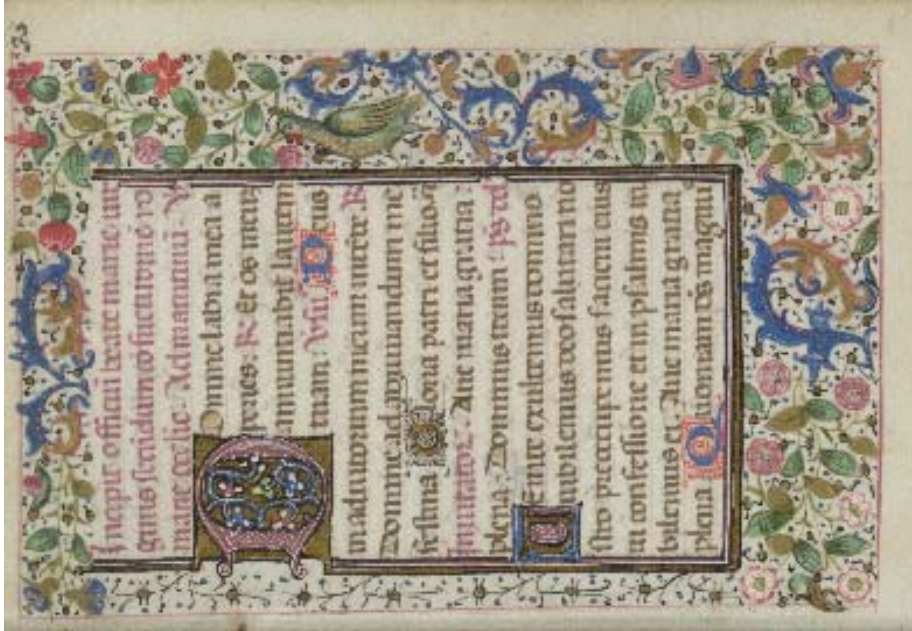 Incipit officiū beate marie uir
ginis secundum
mane Ad matutinū V
Domine labia mea a
peries: R: Et os meum
annuntiabit laudem
tuam: Deus
in adiutorium meum intēde. R
Domine ad adiuuandum me
festina Gloria patri et filio
Aue maria gratia
plena. Dominus tecum. ps dd
Uenite exultemus domino
iubilemus deo salutari no
stro faciem eius
in confessione et in psalmis iu
bilemus ei. Aue maria gratia
plena Quoniam ds magnus